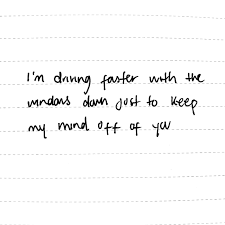 I'm driving faster with the
windows down just to keep
my mind off of you